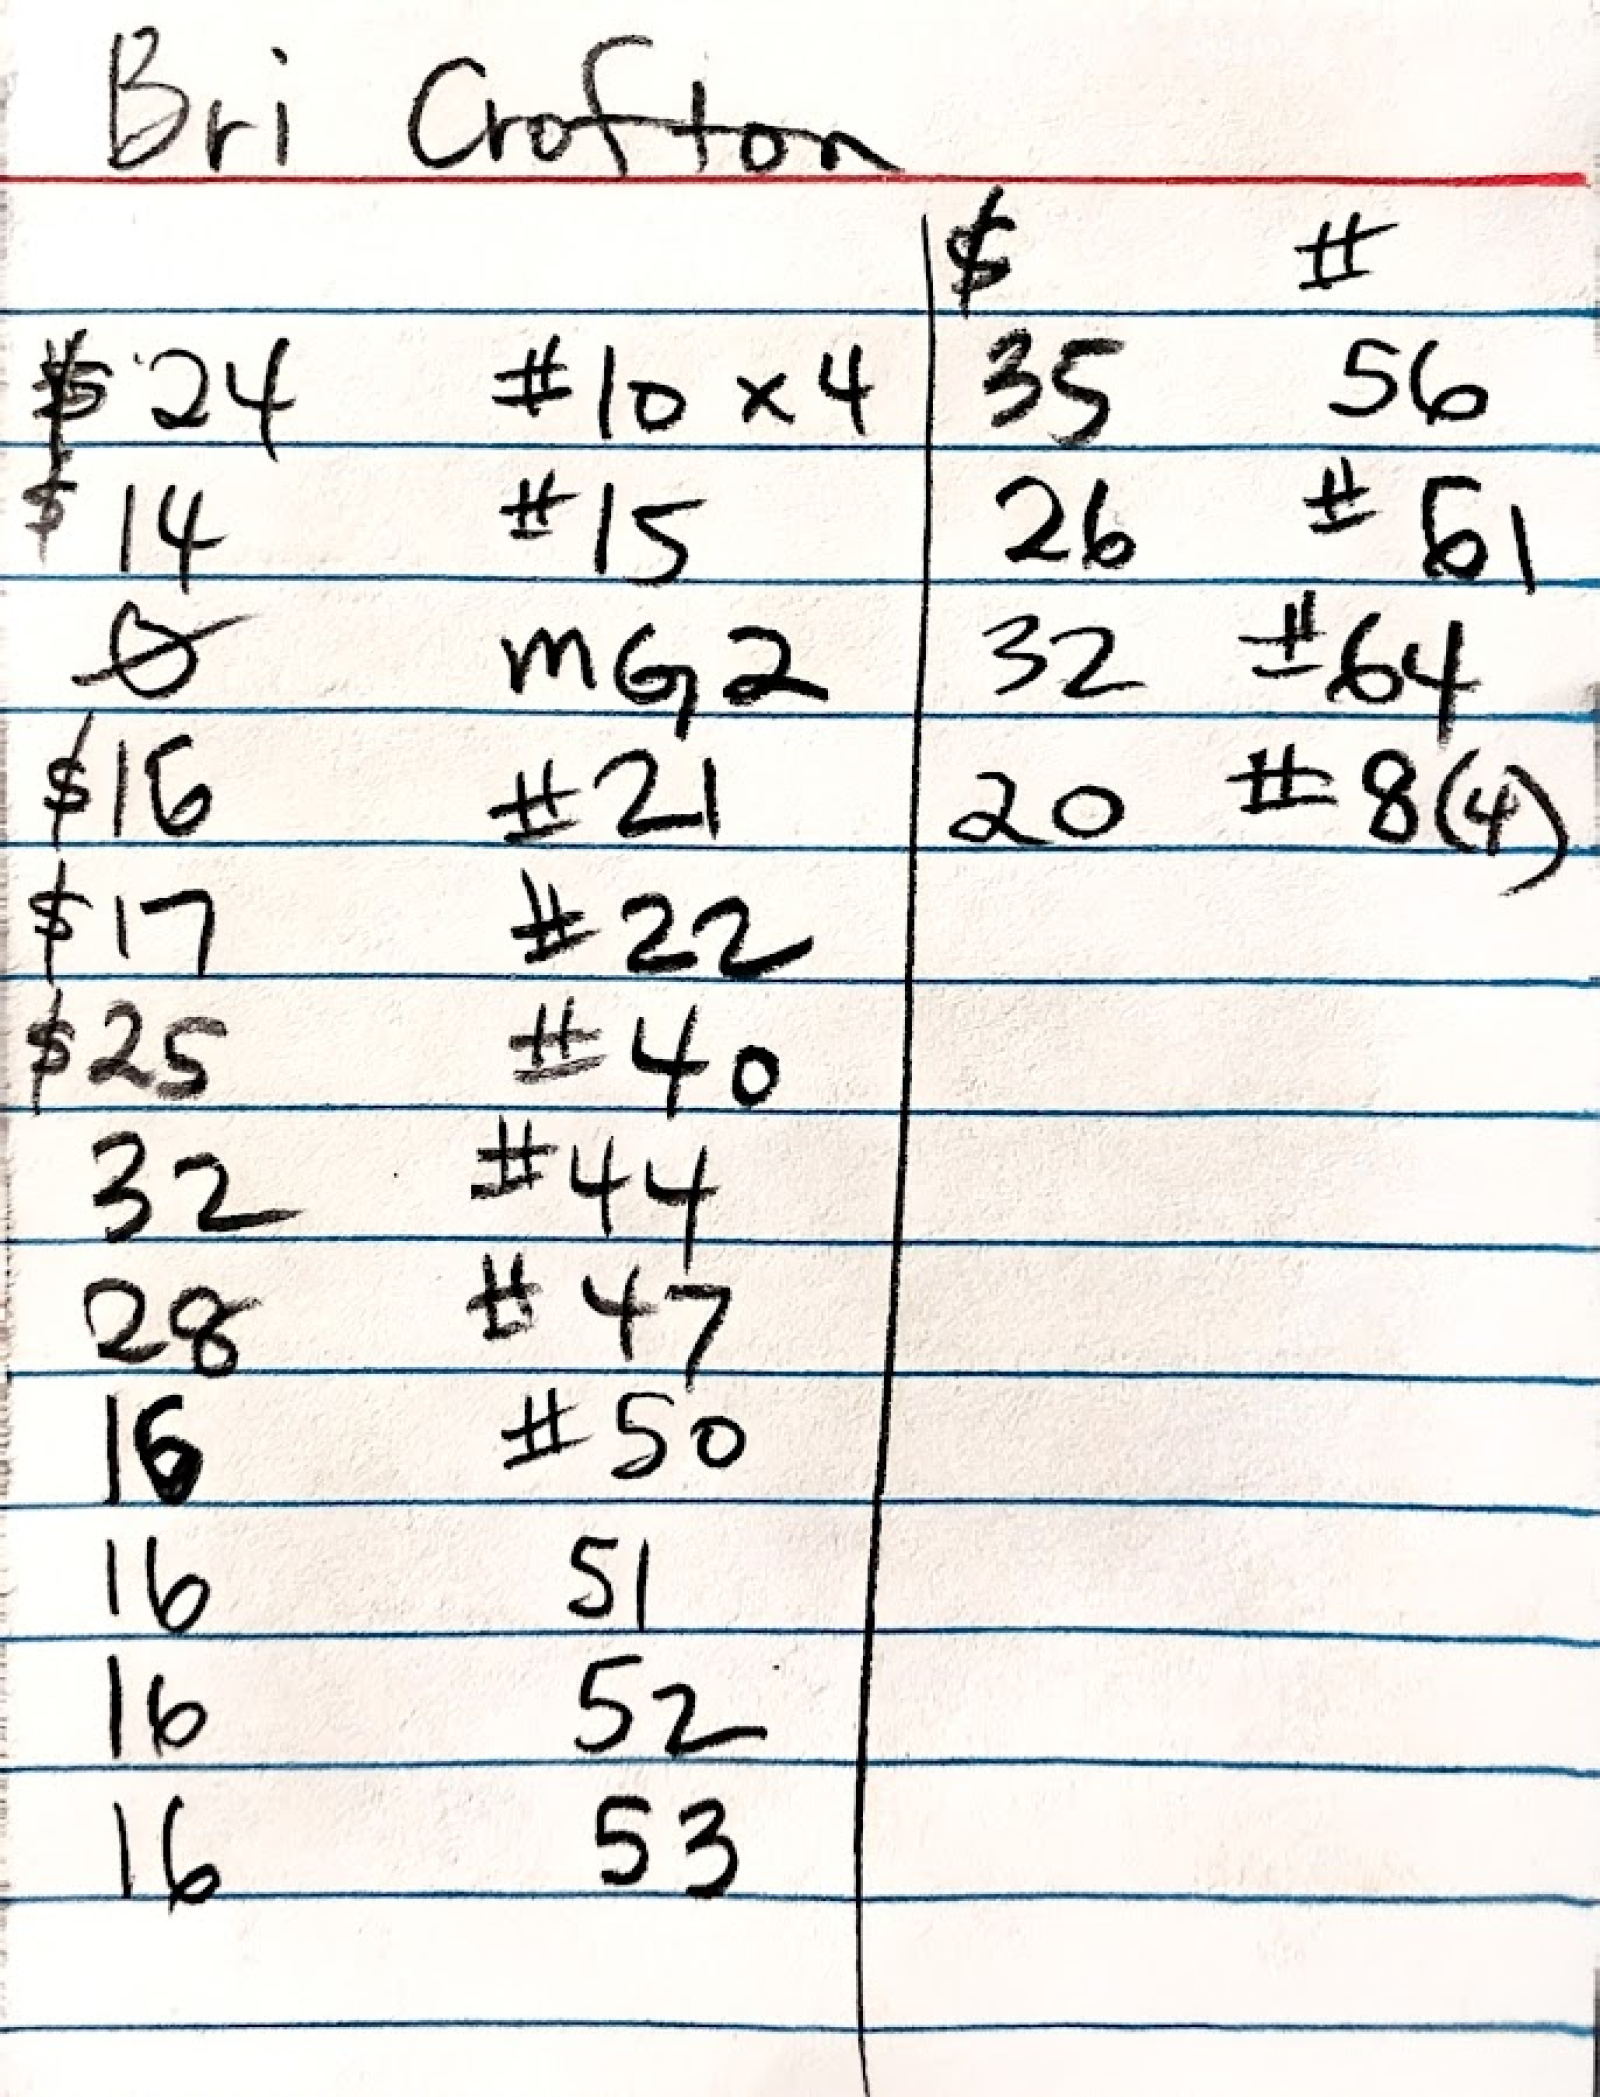 Bri Crofton
$ 24 #10 x 4
$ 14 #15
0 MG2
$16 #21
$17 #22
$25 #40
32 #44
28 #47
16 #50
16 51
16 52
16 53
$ #
35 56
26 #61
32 #64
20 #8(4)